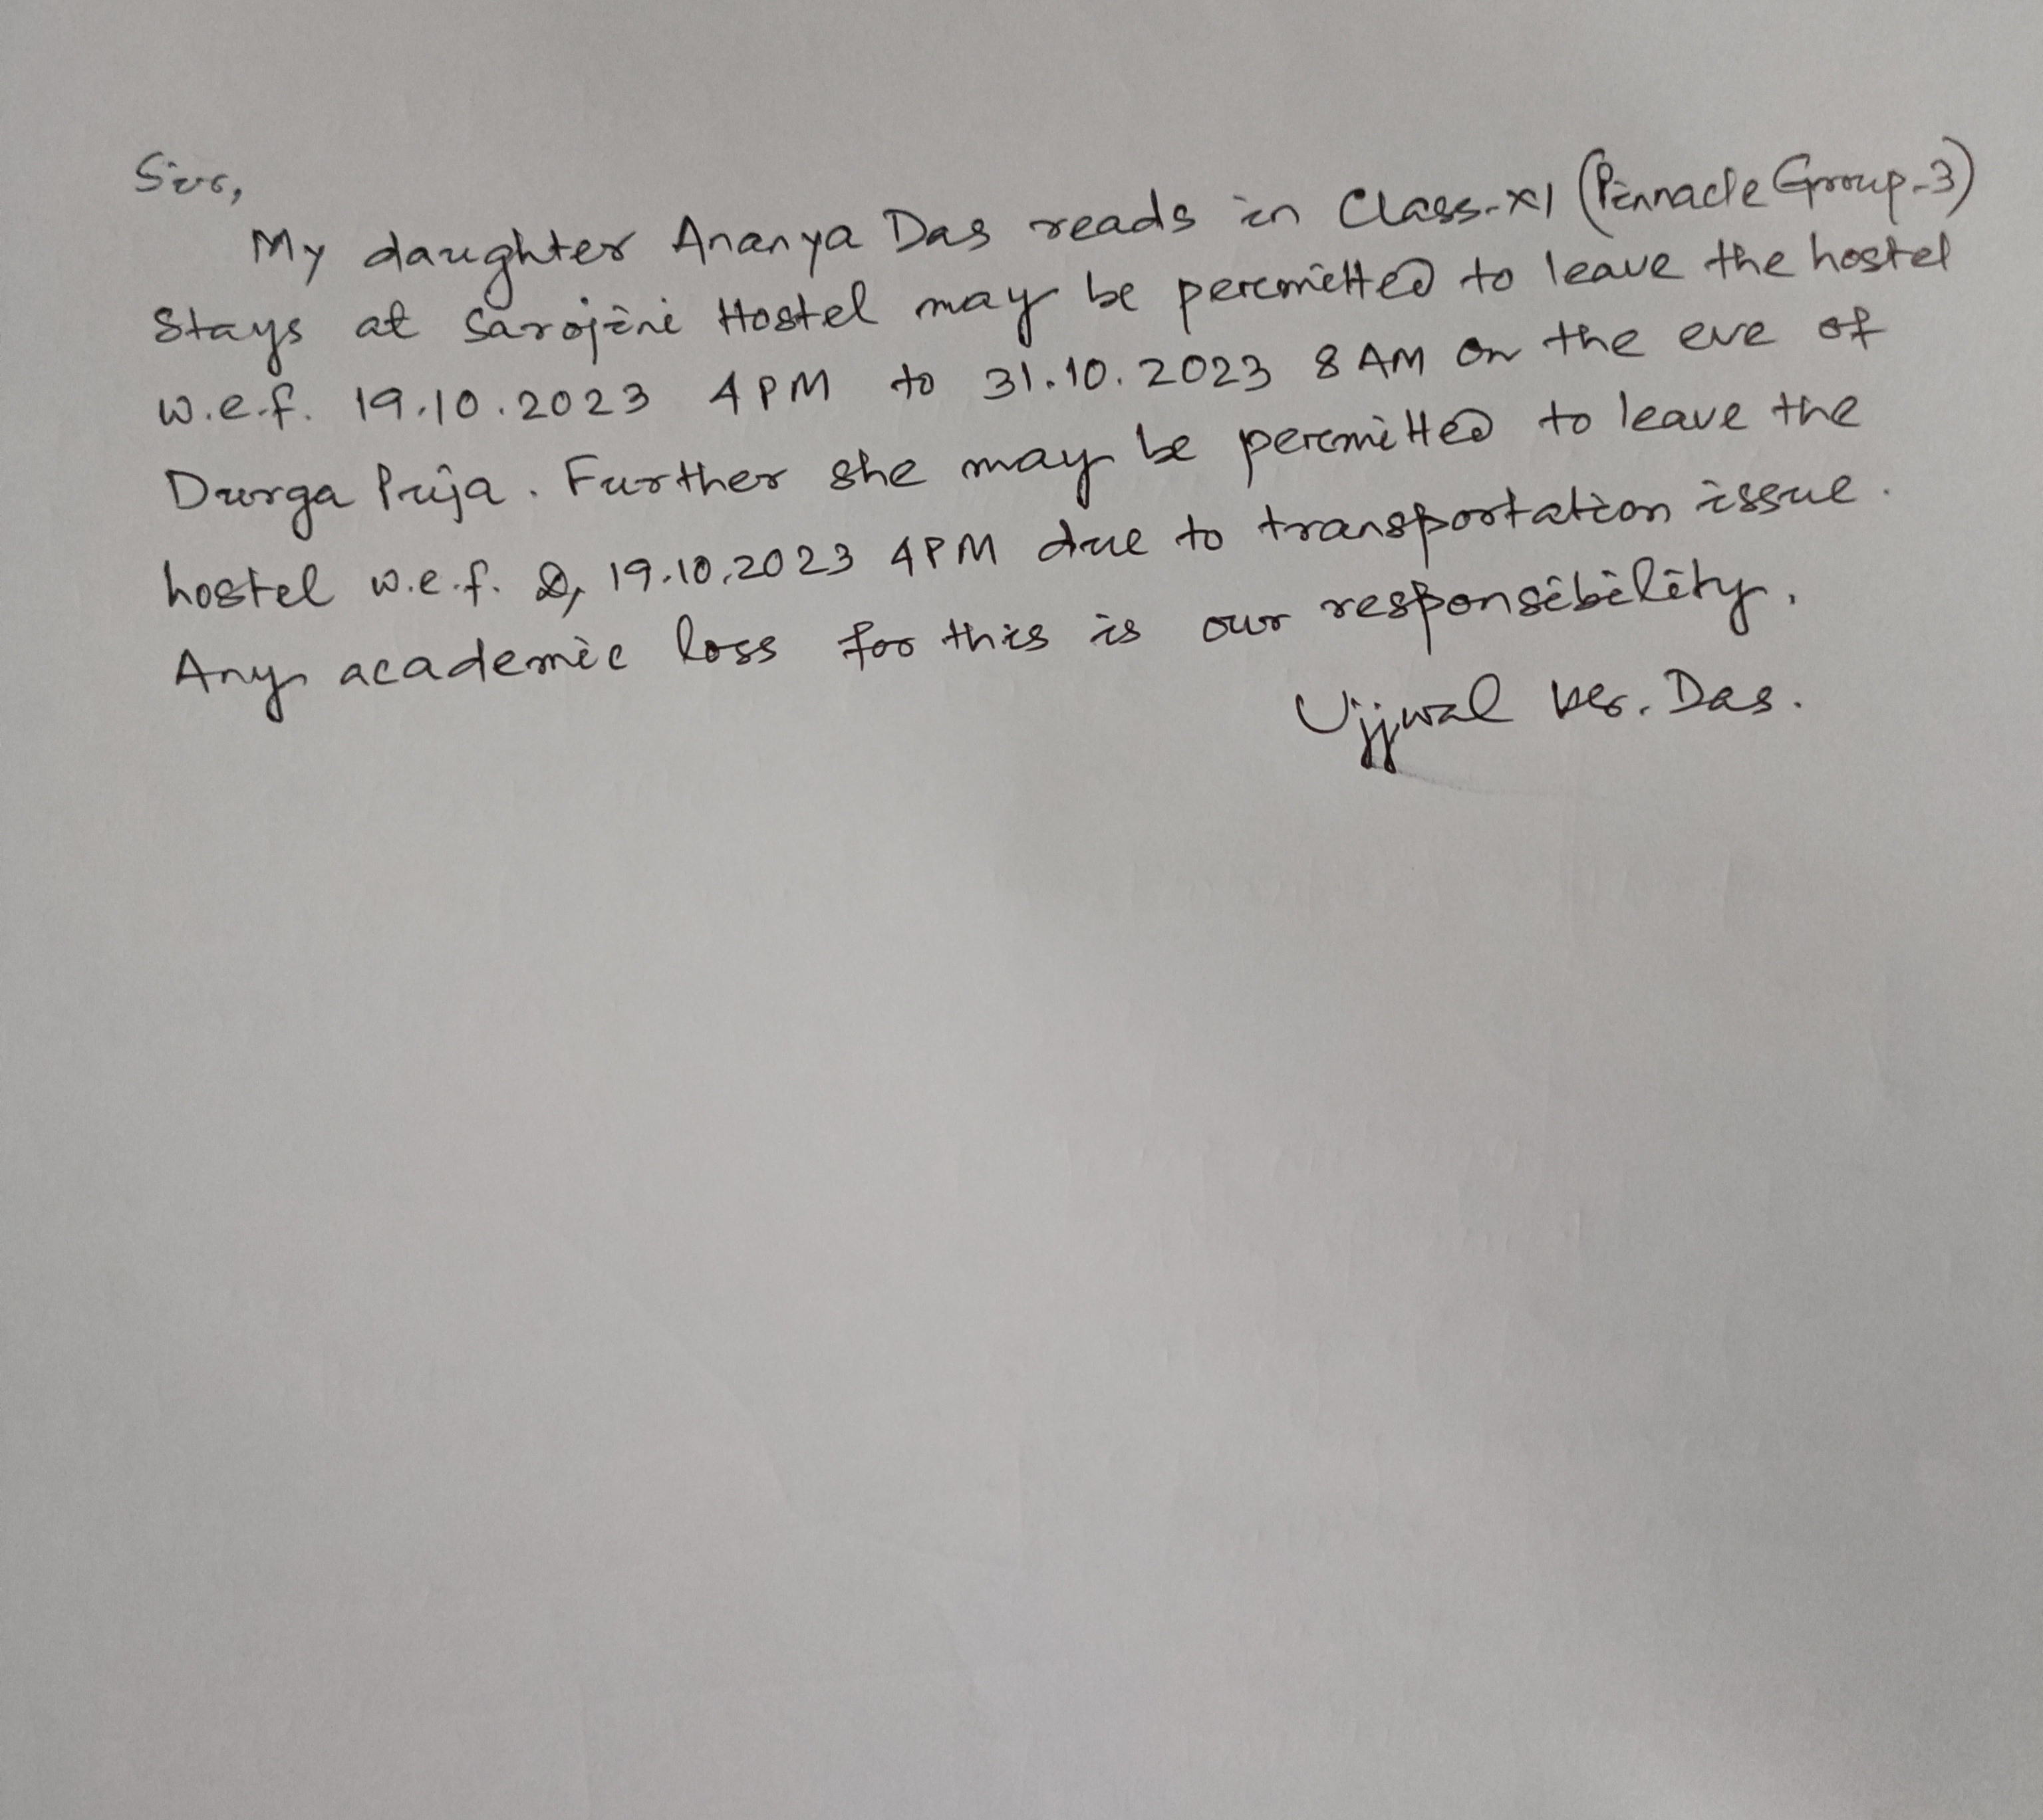 Sir,
My daughter Ananya Das reads in Class-XI (Pinnacle Group-3)
Stays at Sarojini Hostel may be permitted to leave the hostel
w.e.f. 19.10.2023 4PM to 31.10.2023 8 AM on the eve of
Durga Puja. Further she may be permitted to leave the
hostel w.e.f. 19.10.2023 4PM due to transportation issue.
Any academic loss for this is our responsibility.
Ujjwal Kr. Das.